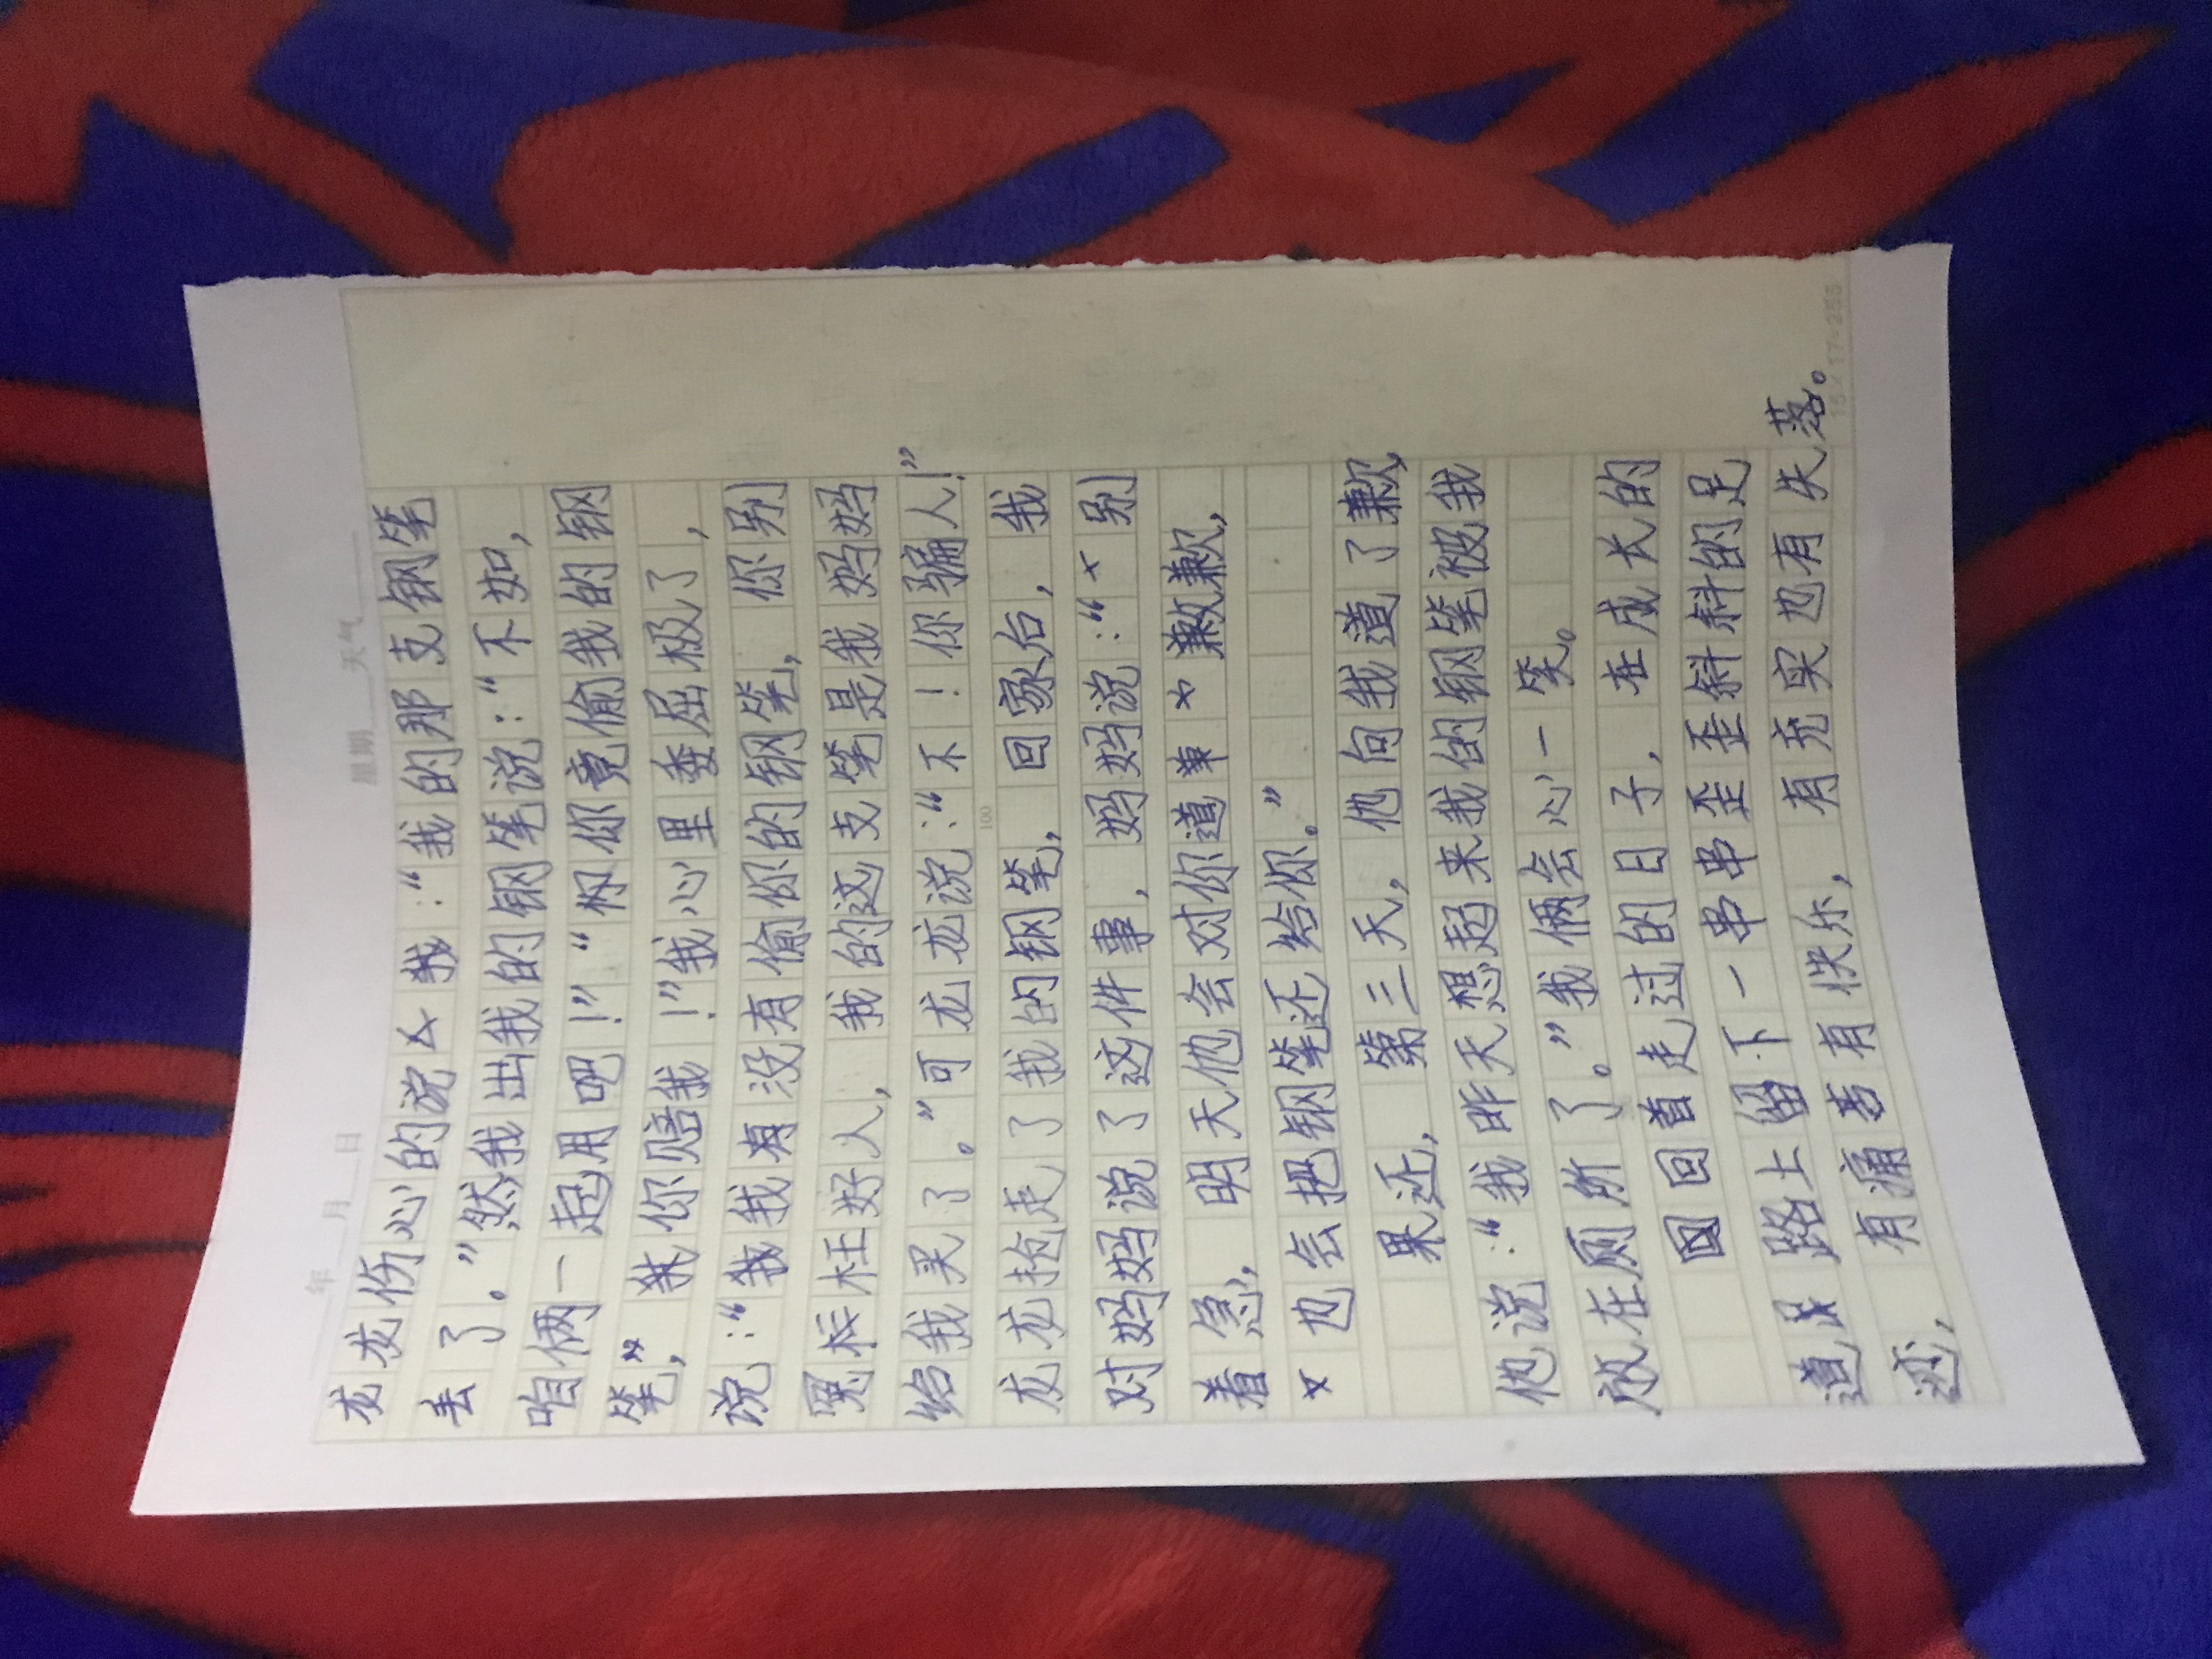 年 月 日 星期 天气
龙龙伤心的说 我：“我的那支钢笔
丢了。”然我出我的钢笔说：“不如，
咱俩一起用吧！”“ 你竟偷我的钢
笔”， 你赔我！”我心里委屈极了，
说：“我我有没有偷你的钢笔，你别
冤 枉好人，我的这支笔是我妈妈
给我买了。”可龙龙说：“不！你骗人！”
100
龙龙抢走了我的钢笔，回家台，我
对妈妈说了这件事，妈妈说：“ 别
着急，明天他会对你道 歉，
也会把钢笔还给你。”
果还，第三天，他向我道了歉，
他说：“我昨天想起来我的钢笔被我
放在厕所了。”我俩会心一笑。
回首走过的日子，在成长的
道 路上留下一串串歪歪斜斜的足
迹，有痛苦有快乐，有充实也有失落。
15×17=255